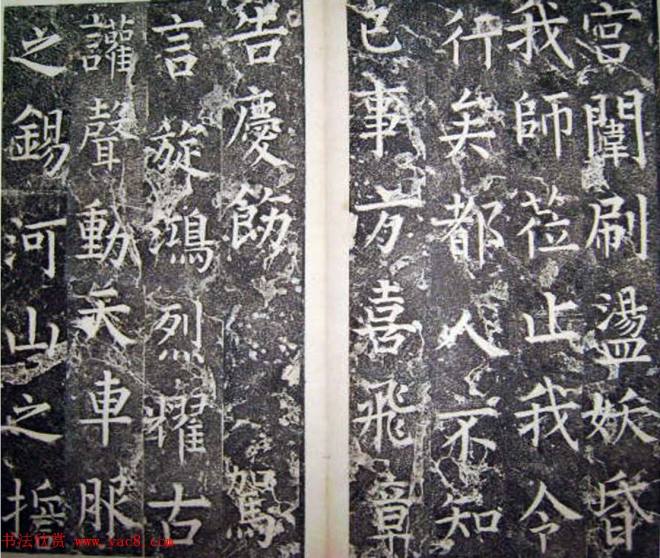 宮闈刷盪妖昏
我師莅止我令
行矣都人不知
已事方喜飛章
告慶飭 駕
言旋鴻烈耀古
讙聲動天車服
之錫河山之
书法欣赏 www.yac8.com